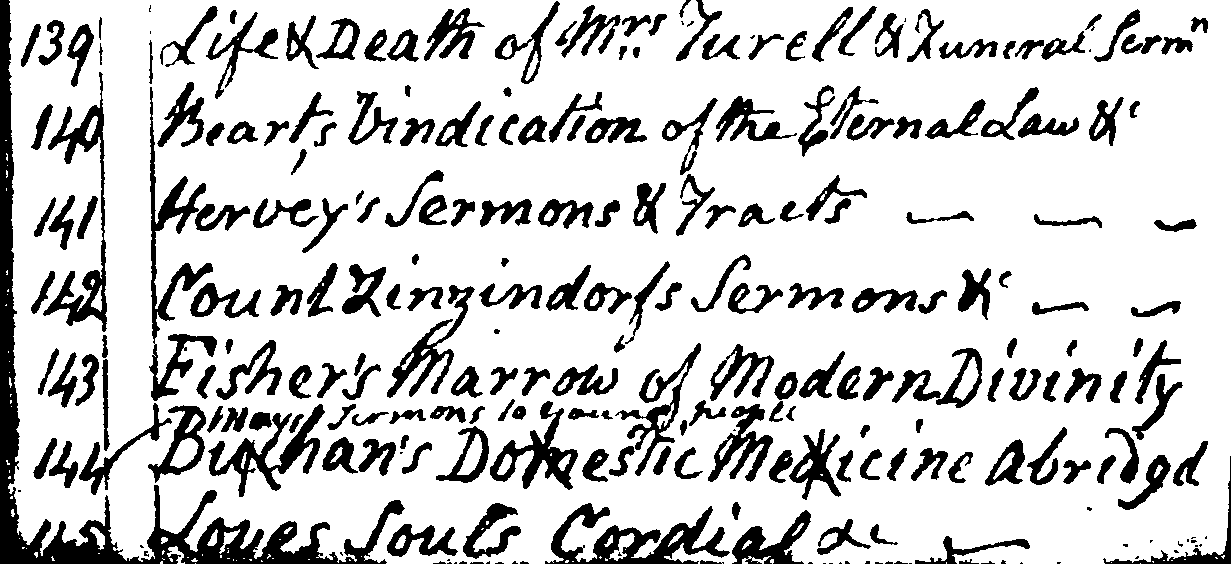 139 Life & Death of Mrs. Turell & Funeral Sermn
140 Beart,s Vindication of the Eternal Law &c
141 Hervey's Sermons & Tracts — — —
142 Count Zinzindorfs Sermons &c — —
143 Fisher's Marrow of Modern Divinity
Sermons to Young people
144 Buchan's Domestic Medicine Abridgd
145 Loves Souls Cordial &c —